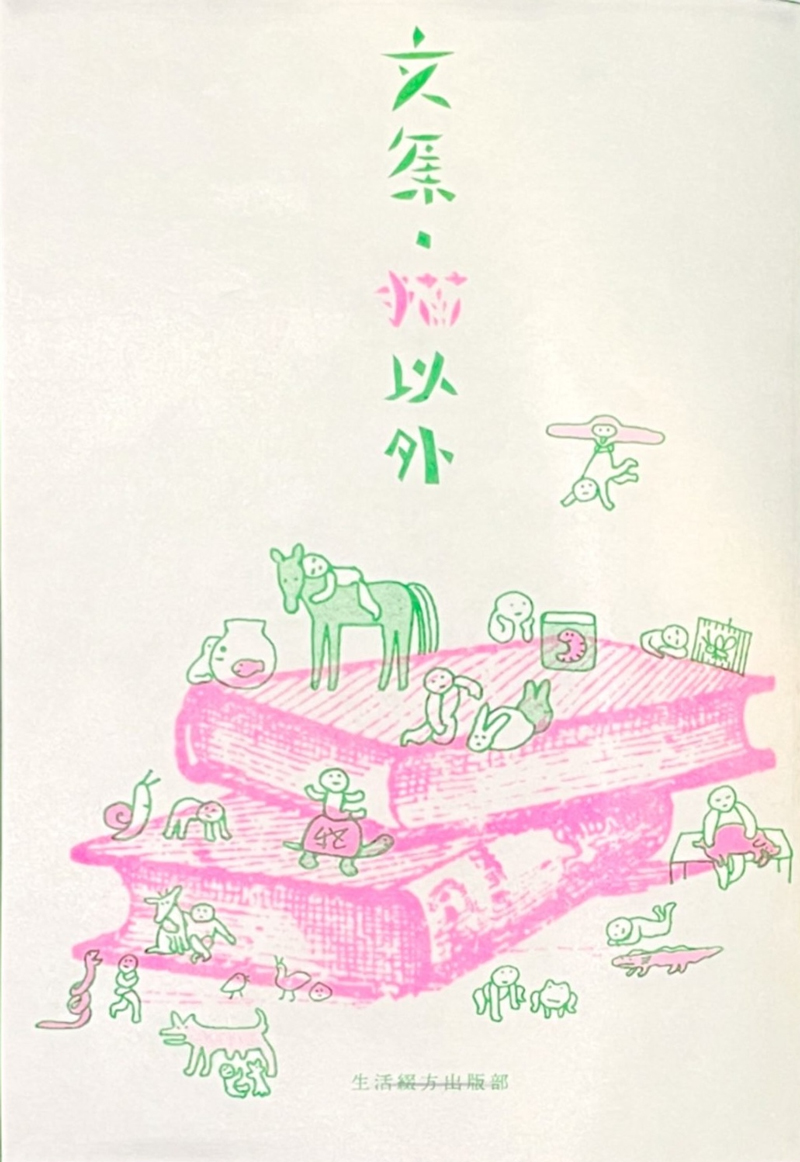 文集・猫以外
生活綴方出版部